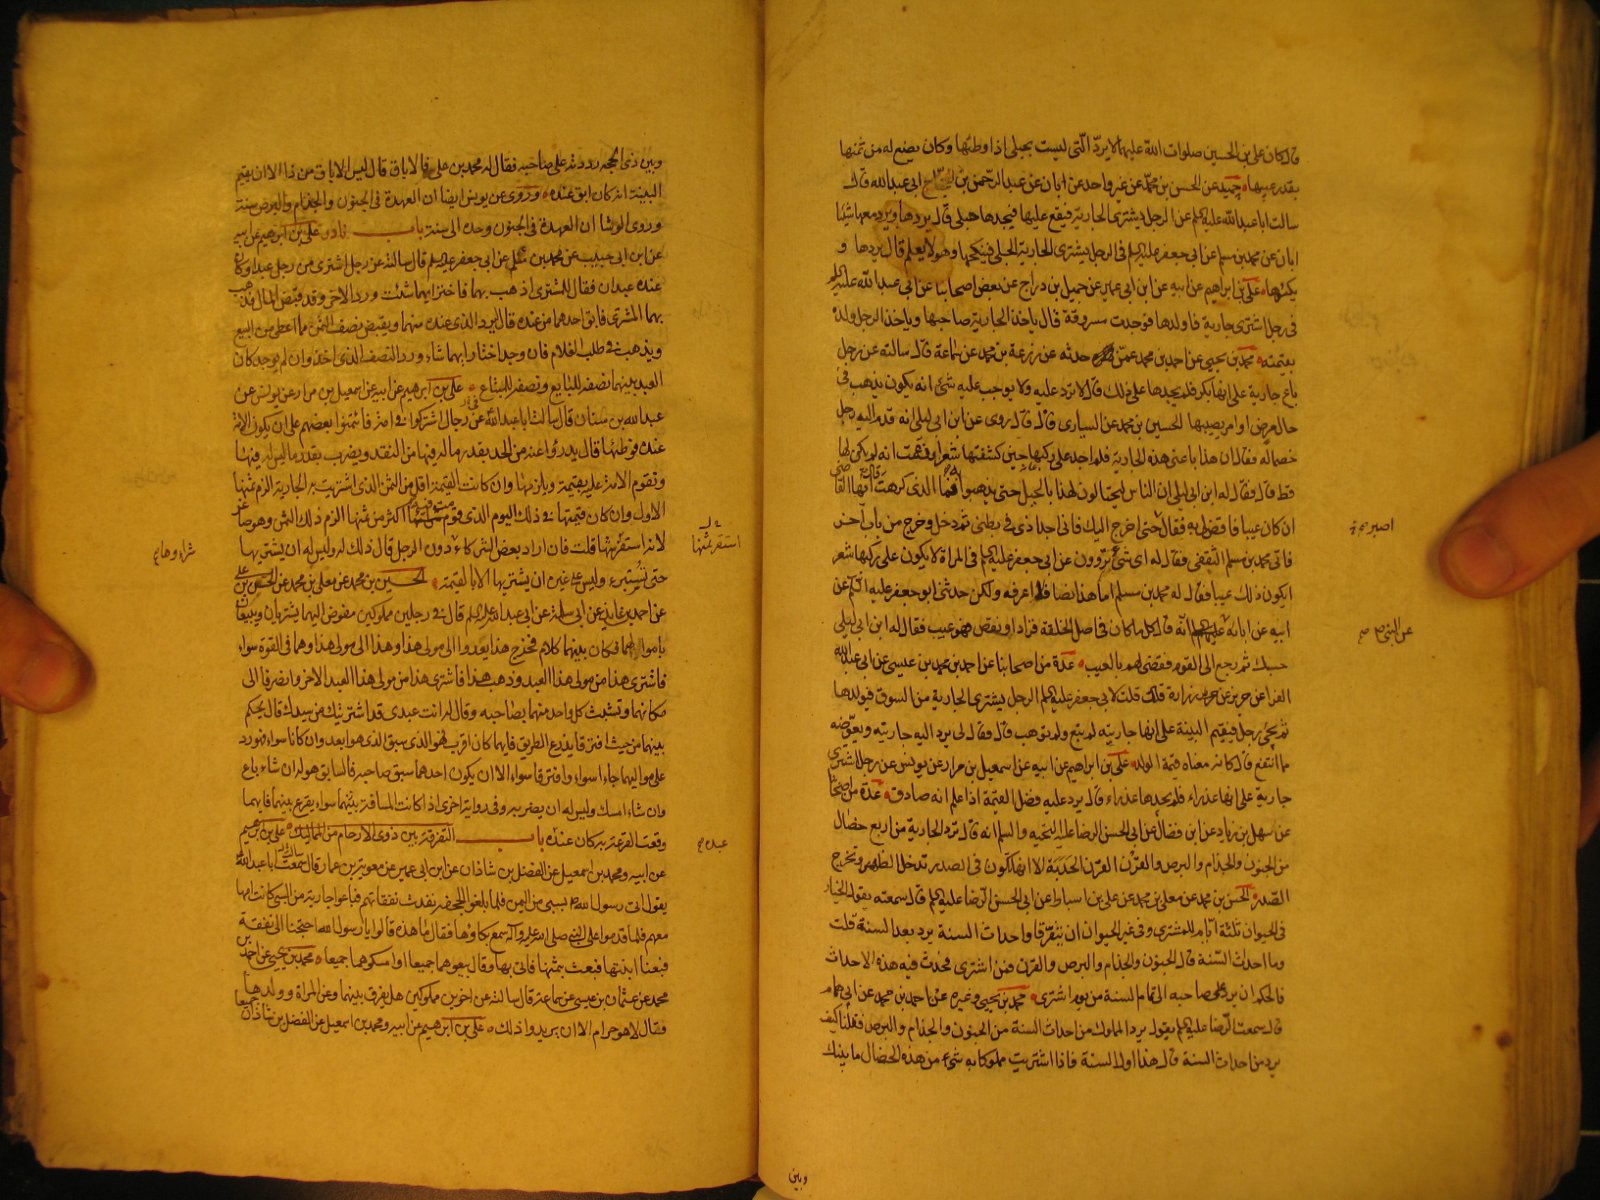 قال كان علي بن الحسين صلوات الله عليهما لا يردّ التي ليست بحبلى اذا وطئها وكان يضع له من ثمنها
بقدر عيبها حميد عن الحسن بن محمد عن غير واحد عن ابان عن عبد الرحمن بن ابي عبد الله قال
سالت ابا عبد الله عليه السلم عن الرجل يشترى الجارية فيقع عليها فيجدها حبلى قال يردها ويرد معها شيئا
ابان عن محمد بن مسلم عن ابي جعفر عليه السلم في الرجل يشترى الجارية الحبلى فينكحها وهو لا يعلم قال يردها و
يكسوها علي بن ابراهيم عن ابيه عن ابن ابي عمير عن جميل بن دراج عن بعض اصحابنا عن ابي عبد الله عليه السلم
في رجل اشترى جارية فاولدها فوجدت مسروقة قال ياخذ الجارية صاحبها وياخذ الرجل ولده
بقيمته محمد بن يحيى عن احمد بن محمد عمن حدثه عن زرعة بن محمد عن سماعة قال سالته عن رجل
باع جارية على انها بكر فلم يجدها على ذلك قال لا ترد عليه ولا يوجب عليه شئ انه يكون يذهب في
حال مرض او امر يصيبها الحسين بن محمد عن السيارى قال قال روى عن ابن ابي ليلى انه قدم اليه رجل
خصما له فقال ان هذا باعنى هذه الجارية فلم اجد على ركبها حين كشفتها شعرا وزعمت انه لم يكن لها
قط قال فقال له ابن ابي ليلى ان الناس ليحتالون لهذا بالحيل حتى يذهبوا به فما الذى كرهت قال ايها القاضى
ان كان عيبا فاقض لى به فقال حتى اخرج اليك فانى اجد اذى في بطنى ثم دخل وخرج من باب آخر
فاتى محمد بن مسلم الثقفى فقال له اى شئ تروون عن ابي جعفر عليه السلم في المراة لا يكون على ركبها شعر
ايكون ذلك عيبا فقال له محمد بن مسلم اما هذا نصا فلا اعرفه ولكن حدثنى ابو جعفر عليه السلم عن
ابيه عن ابائه عليهم انه قال كل ما كان في اصل الخلقة فزاد او نقص فهو عيب فقال له ابن ابي ليلى
حسبك ثم رجع الى القوم فقضى لهم بالعيب عدة من اصحابنا عن احمد بن محمد بن عيسى عن ابي عبد الله
الفرا عن حريز عن زرارة قال قلت لابي جعفر عليه السلم الرجل يشترى الجارية من السوق فيولدها
ثم يجئ رجل فيقيم البينة على انها جاريته لم تبع ولم توهب قال فقال لى يرد اليه جاريته ويعوضه
مما انتفع قال كانه معناه قيمة الولد علي بن ابراهيم عن ابيه عن اسمعيل بن مرار عن يونس عن رجل اشترى
جارية على انها عذراء فلم يجدها عذراء قال يرد عليه فضل القيمة اذا علم انه صادق عدة من اصحابنا
عن سهل بن زياد عن ابن فضال عن ابي الحسن الرضا عليه التحيه والسلم انه قال ترد الجارية من اربع خصال
من الجنون والجذام والبرص والقرن القرن الحدبة الا انها تكون في الصدر تدخل الظهر وتخرج
الصدر الحسين بن محمد عن معلى بن محمد عن علي بن اسباط عن ابي الحسن الرضا عليه السلم قال سمعته يقول الخيار
في الحيوان ثلثة ايام للمشترى وفي غير الحيوان ان يتفرقا واحداث السنة يرد بعد السنة قلت
وما احداث السنة قال الجنون والجذام والبرص والقرن فمن اشترى فحدث فيه هذه الاحداث
فالحكم ان يرد على صاحبه الى تمام السنة من يوم اشترى محمد بن يحيى وغيره عن احمد بن محمد عن ابي همام
قال سمعت الرضا عليه السلم يقول يرد المملوك من احداث السنة من الجنون والجذام والبرص فقلنا كيف
يرد من احداث السنة قال هذا اول السنة فاذا اشتريت مملوكا به شئ من هذه الخصال ما بينك
وبين
عن النبي ص
وبين ذى الحجه رددته على صاحبه فقال له محمد بن علي فالاباق قال ليس الاباق من ذا الا ان يقيم
البينة انه كان ابق عنده وروى عن يونس ايضا ان العهدة في الجنون والجذام والبرص سنة
وروى الوشا ان العهدة في الجنون وحده الى سنة باب نادر علي بن ابراهيم عن ابيه
عن ابن ابي حبيب عن محمد بن مسلم عن ابي جعفر عليه السلم قال سالته عن رجل اشترى من رجل عبدا وكان
عنده عبدان فقال للمشترى اذهب بهما فاختر ايهما شئت ورد الاخر وقد قبض المال فذهب
بهما المشترى فابق احدهما من عنده قال ليرد الذى عنده منهما ويقبض نصف الثمن مما اعطى من البيع
ويذهب في طلب الغلام فان وجد اختار ايهما شاء ورد النصف الذى اخذ وان لم يوجد كان
العبد بينهما نصفه للبايع ونصفه للمبتاع علي بن ابراهيم عن ابيه عن اسمعيل بن مرار عن يونس عن
عبد الله بن سنان قال سالت ابا عبد الله عن رجال اشتركوا في امة فائتمنوا بعضهم على ان يكون الامة
عنده فوطئها قال يدرؤا عنه من الحد بقدر ماله فيها من النقد ويضرب بقدر ما ليس له فيها
وتقوم الامة عليه بقيمة ويلزمها وان كانت القيمة اقل من الثمن الذى اشتريت به الجارية الزم ثمنها
الاول وان كان قيمتها في ذلك اليوم الذى قوم فيه اكثر من ثمنها الزم ذلك الثمن وهو صاغر
لانه استفرشها قلت فان اراد بعض الشركاء دون الرجل قال ذلك له وليس له ان يشتريها
حتى تستبرء وليس على غيره ان يشتريها الا بالقيمة الحسين بن محمد عن معلى بن محمد عن الحسن بن علي
عن احمد بن عايذ عن ابي سلمة عن ابي عبد الله عليه السلم قال في رجلين مملوكين مفوض اليهما يشتريان ويبيعان
باموالهما فكان بينهما كلام فخرج هذا يعدوا الى مولى هذا وهذا الى مولى هذا وهما في القوة سواء
فاشترى هذا من مولى هذا العبد وذهب هذا فاشترى هذا من مولى هذا العبد الاخر وانصرفا الى
مكانهما وتشبث كل واحد منهما بصاحبه وقال له انت عبدى قد اشتريتك من سيدك قال يحكم
بينهما من حيث افترقا يذرع الطريق فايهما كان اقرب فهو الذى سبق الذى هو ابعد وان كانا سواء فهو رد
على مواليهما جاءا سواء وافترقا سواء الا ان يكون احدهما سبق صاحبه فالسابق هو له ان شاء باع
وان شاء امسك وليس له ان يضر به وفي رواية اخرى اذا كانت المسافة بينهما سواء يقرع بينهما فايهما
وقعت القرعة به كان عنده باب التفرقة بين ذوى الارحام من المماليك علي بن ابراهيم
عن ابيه ومحمد بن اسمعيل عن الفضل بن شاذان عن ابن ابي عمير عن معوية بن عمار قال سمعت ابا عبد الله
يقول اتى رسول الله ص بسبى من اليمن فلما بلغوا الجحفة نفدت نفقاتهم فباعوا جارية من السبى كانت امها
معهم فلما قدموا على النبى صلى الله عليه وآله سمع بكاؤها فقال ما هذه قالوا يا رسول الله احتجنا الى نفقة
فبعنا ابنتها فبعث بثمنها فاتى بها وقال بيعوهما جميعا او امسكوهما جميعا محمد بن يحيى عن احمد بن
محمد عن عثمان بن عيسى عن سماعة قال سالته عن اخوين مملوكين هل يفرق بينهما وعن المراة وولدها
فقال لا هو حرام الا ان يريدوا ذلك علي بن ابراهيم عن ابيه ومحمد بن اسمعيل عن الفضل بن شاذان جميعا